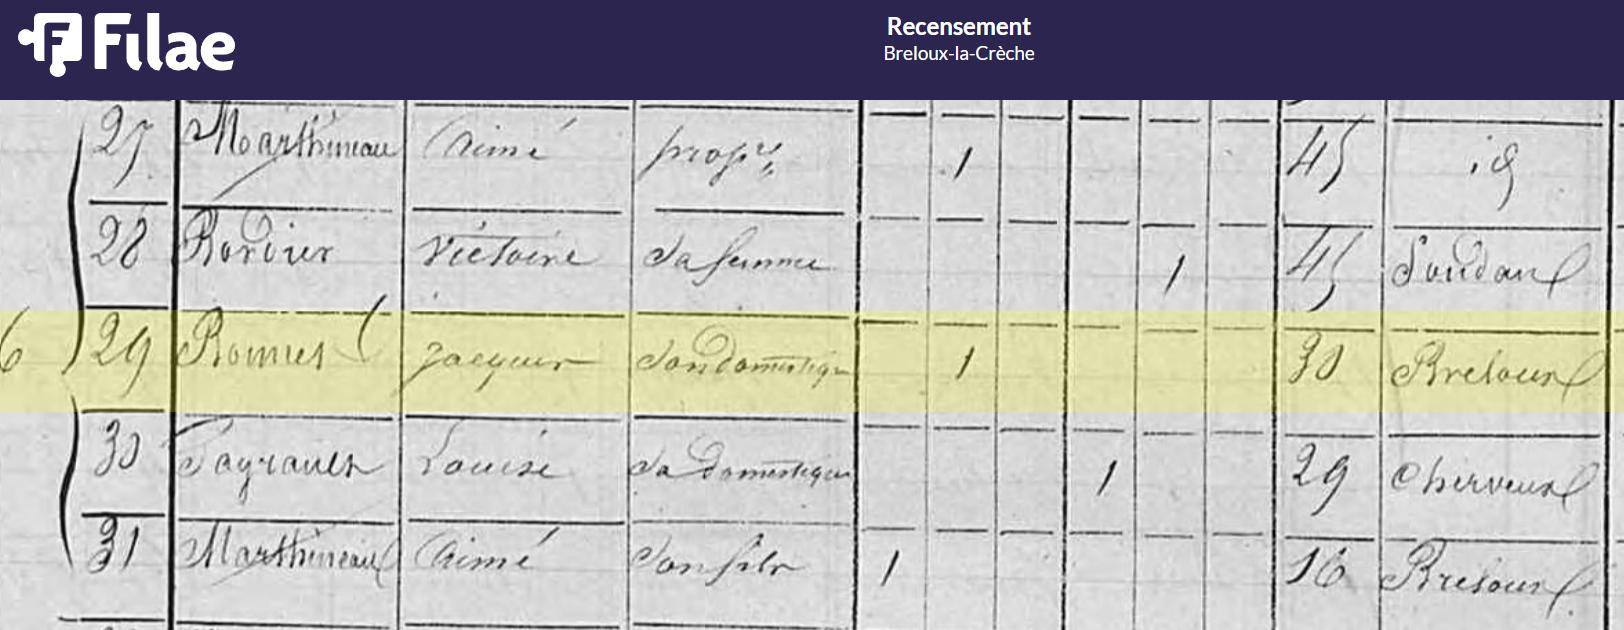 Filae
Recensement
Breloux-la-Crèche
27 Marthineau Aimé propre 1 45 id
28 Bordier Victoire Sa femme 1 45 Soudan
6 29 Jacques Son domestique 1 30 Breloux
30 Louise Sa Domestique 1 29 Cherveux
31 Marthineau Aimé Son fils 1 16 Breloux